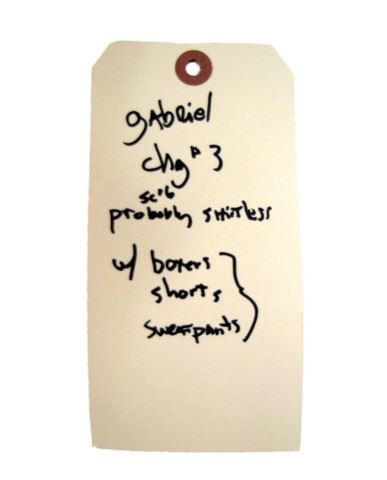 gabriel
chg #3
sc 16
probably shirtless
w/ boxers
shorts
sweatpants